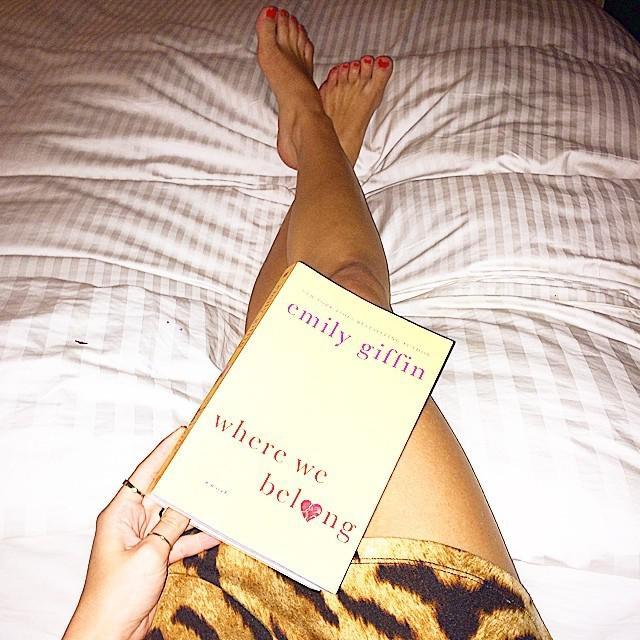 NEW YORK TIMES BESTSELLING AUTHOR
emily giffin
where we
belong
a novel